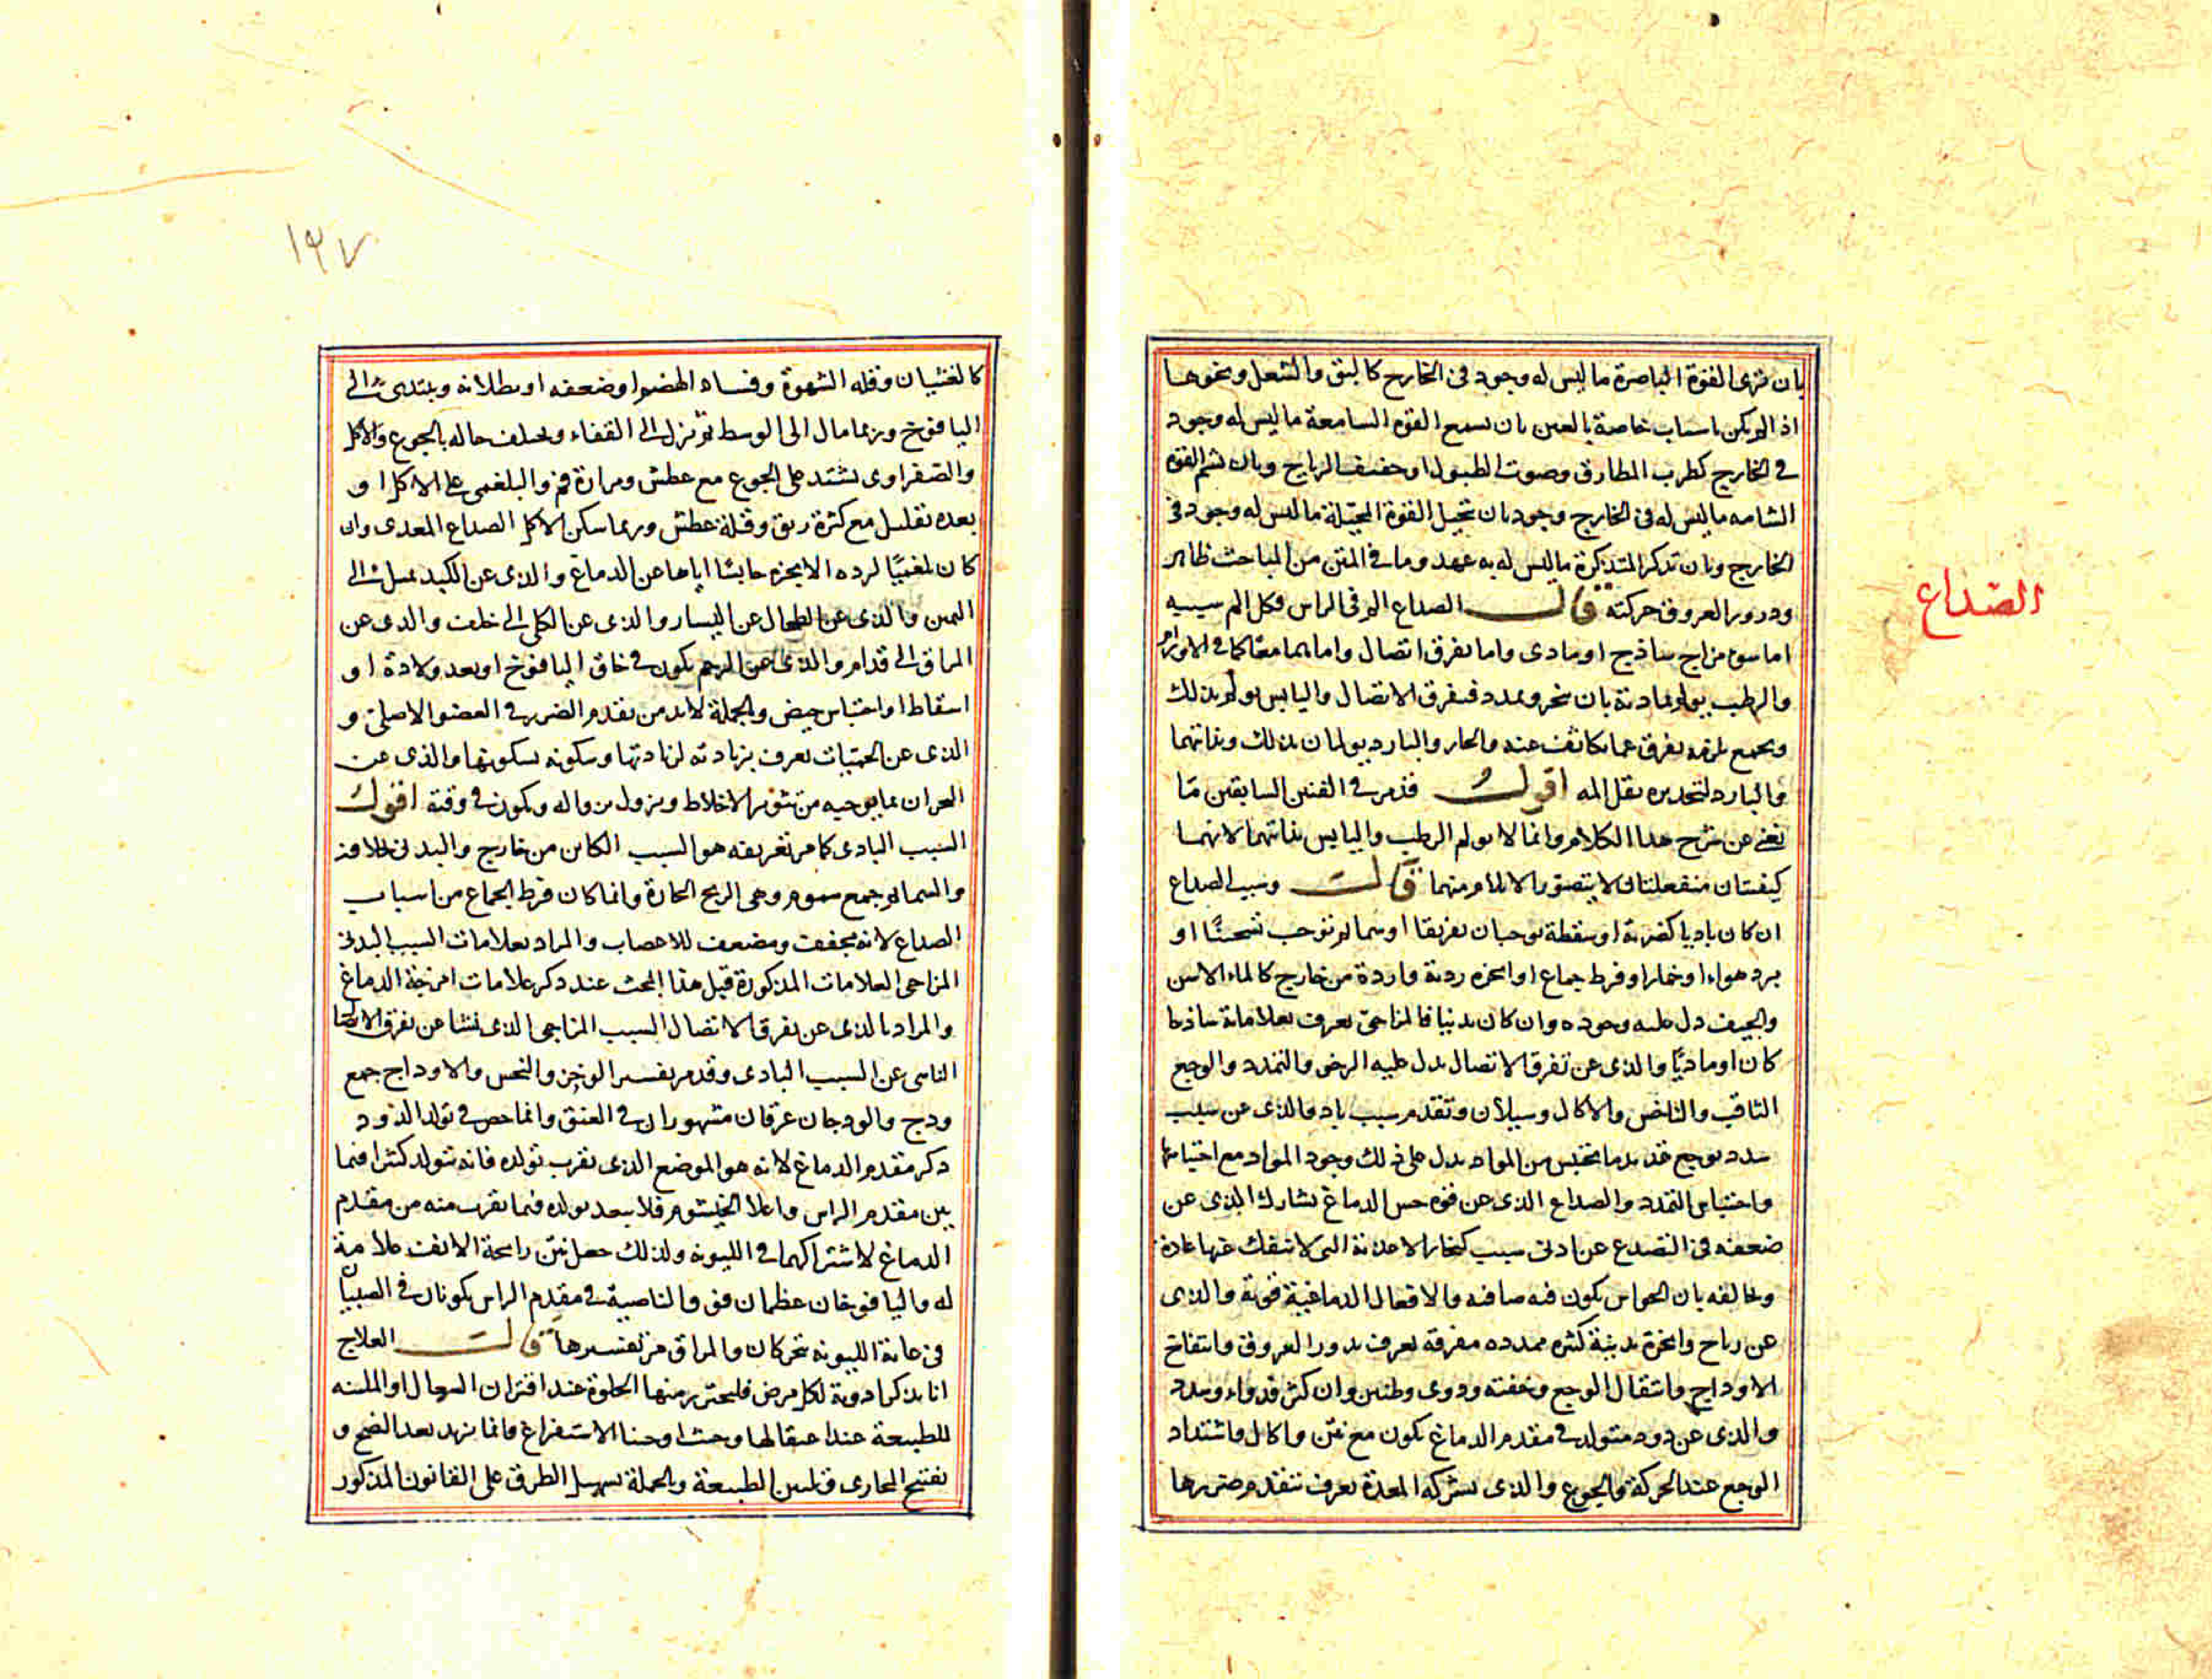 بان ترى القوة الباصرة ما ليس له وجود في الخارج كالبق والشعل ونحوها
اذا لم يكن باسباب خاصة بالعين بان تسمع القوة السامعة ما ليس له وجود
في الخارج كطرب المطارق وصوت الطبول او حفيف الرياح وبان تشم القوة
الشامه ما ليس له في الخارج وجود بان تخيل القوة المخيلة ما ليس له وجود في
الخارج وبان تذكر المتذكرة ما ليس له به عهد وما في المتن من المباحث ظاهر
ودرور العروق حركته قال الصداع الم في الراس وكل الم سببه
اما سوء مزاج ساذج او مادى واما تفرق اتصال واما هما معا كما في الاورام
والرطب يولم بمادته بان تمدد فيفرق الاتصال واليابس يولم بذلك
وبجمع يلزمه تفرق عما تكاثف عنده والحار والبارد يولمان بذلك وبذاتهما
والبارد لتخديره يقل المه اقول قد مر في الفنين السابقين ما
يغنى عن شرح هذا الكلام وانما لا يولم الرطب واليابس بذاتهما لانهما
كيفيتان منفعلتان لا يتصور الايلام منهما قال وسبب الصداع
ان كان باديا كضربة او سقطة توجبان تفريقا او سمائم توجب تسخينا او
برد هواء او خمار او فرط جماع او ابخرة ردية واردة من خارج كالماء الآسن
والجيف دل عليه وجوده وان كان بدنيا فالمزاجى يعرف بعلاماته ساذجا
كان او ماديا والذى عن تفرق الاتصال يدل عليه الرض والتمدد والوجع
الثاقب والناخس والاكال وسيلان وتقدم سبب باد والذى عن سبب
سدد يوجع تمدد بما يحتبس من المواد يدل على ذلك وجود المواد مع احتباسها
واحتباس التمدد والصداع الذى عن قوة حس الدماغ يشارك الذى عن
ضعفه في التصدع عن ادنى سبب كبخار الاغذية التى لا تنفك عنها عادة
ويخالفه بان الحواس يكون فيه صافية والافعال الدماغية قوية والذى
عن رياح وابخرة بدنية كثيرة ممددة مفرقة يعرف بدرور العروق وانتفاخ
الاوداج وانتقال الوجع وخفته ودوى وطنين وان كثر فدوار وسدد
والذى عن دود متولد في مقدم الدماغ يكون مع نتن واكال واشتداد
الوجع عند الحركة والجوع والذى بشركة المعدة يعرف بتقدم ضررها
الصداع
١٩٧
كالغثيان وقلة الشهوة وفساد الهضم او ضعفه او بطلانه ويبتدىء الى
اليافوخ وربما مال الى الوسط ثم نزل الى القفاء ويختلف حاله بالجوع والاكل
والصفراوى يشتد على الجوع مع عطش ومرارة فم والبلغمى على الاكل او
بعده بقليل مع كثرة ريق وقلة عطش وربما سكن الاكل الصداع المعدى وان
كان بلغميا لرده الابخرة حابسا اياها عن الدماغ والذى عن الكبد يميل الى
اليمين والذى عن الطحال عن اليسار والذى عن الكلى الى خلف والذى عن
المراق الى قدام والذى عن الرحم يكون في حاق اليافوخ او بعد ولادة او
اسقاط او احتباس حيض وبالجملة لابد من تقدم الضرر في العضو الاصلى و
الذى عن الحميات يعرف بزيادته لزيادتها وسكونه بسكونها والذى عن
البحران بما يوجبه من تثوير الاخلاط ويزول بزواله ويكون في وقته اقول
السبب البادى كما مر تعريفه هو السبب الكائن من خارج والبدنى خلافه
والسمائم جمع سموم وهى الريح الحارة وانما كان فرط الجماع من اسباب
الصداع لانه مجفف ومضعف للاعصاب والمراد بعلامات السبب البدنى
المزاجى العلامات المذكورة قبل هذا البحث عند ذكر علامات امزجة الدماغ
والمراد بالذى عن تفرق الاتصال السبب المزاجى الذى نشا عن تفرق الاتصال
الناشى عن السبب البادى وقد مر تفسير الوخز والنخس والاوداج جمع
ودج والودجان عرقان مشهوران في العنق وانما خص في تولد الدود
ذكر مقدم الدماغ لانه هو الموضع الذى يقرب تولده فانه يتولد كثيرا فيما
بين مقدم الراس واعلا الخيشوم فلا يبعد تولده فيما يقرب منه من مقدم
الدماغ لاشتراكهما في الليونة ولذلك جعل نتن رائحة الانف علامة
له واليافوخان عظمان فوق الناصية في مقدم الراس يكونان في الصبيان
في غاية الليونة يتحركان والمراق مر تفسيرها قال العلاج
انا نذكر ادوية لكل مرض فليحترز منها الحلوة عند اقتران السعال او الملينة
للطبيعة عند اعتقالها وحيث اوجبنا الاستفراغ فانما نريد بعد النضج و
تفتيح المجارى وتليين الطبيعة وبالجملة تسهيل الطرق على القانون المذكور